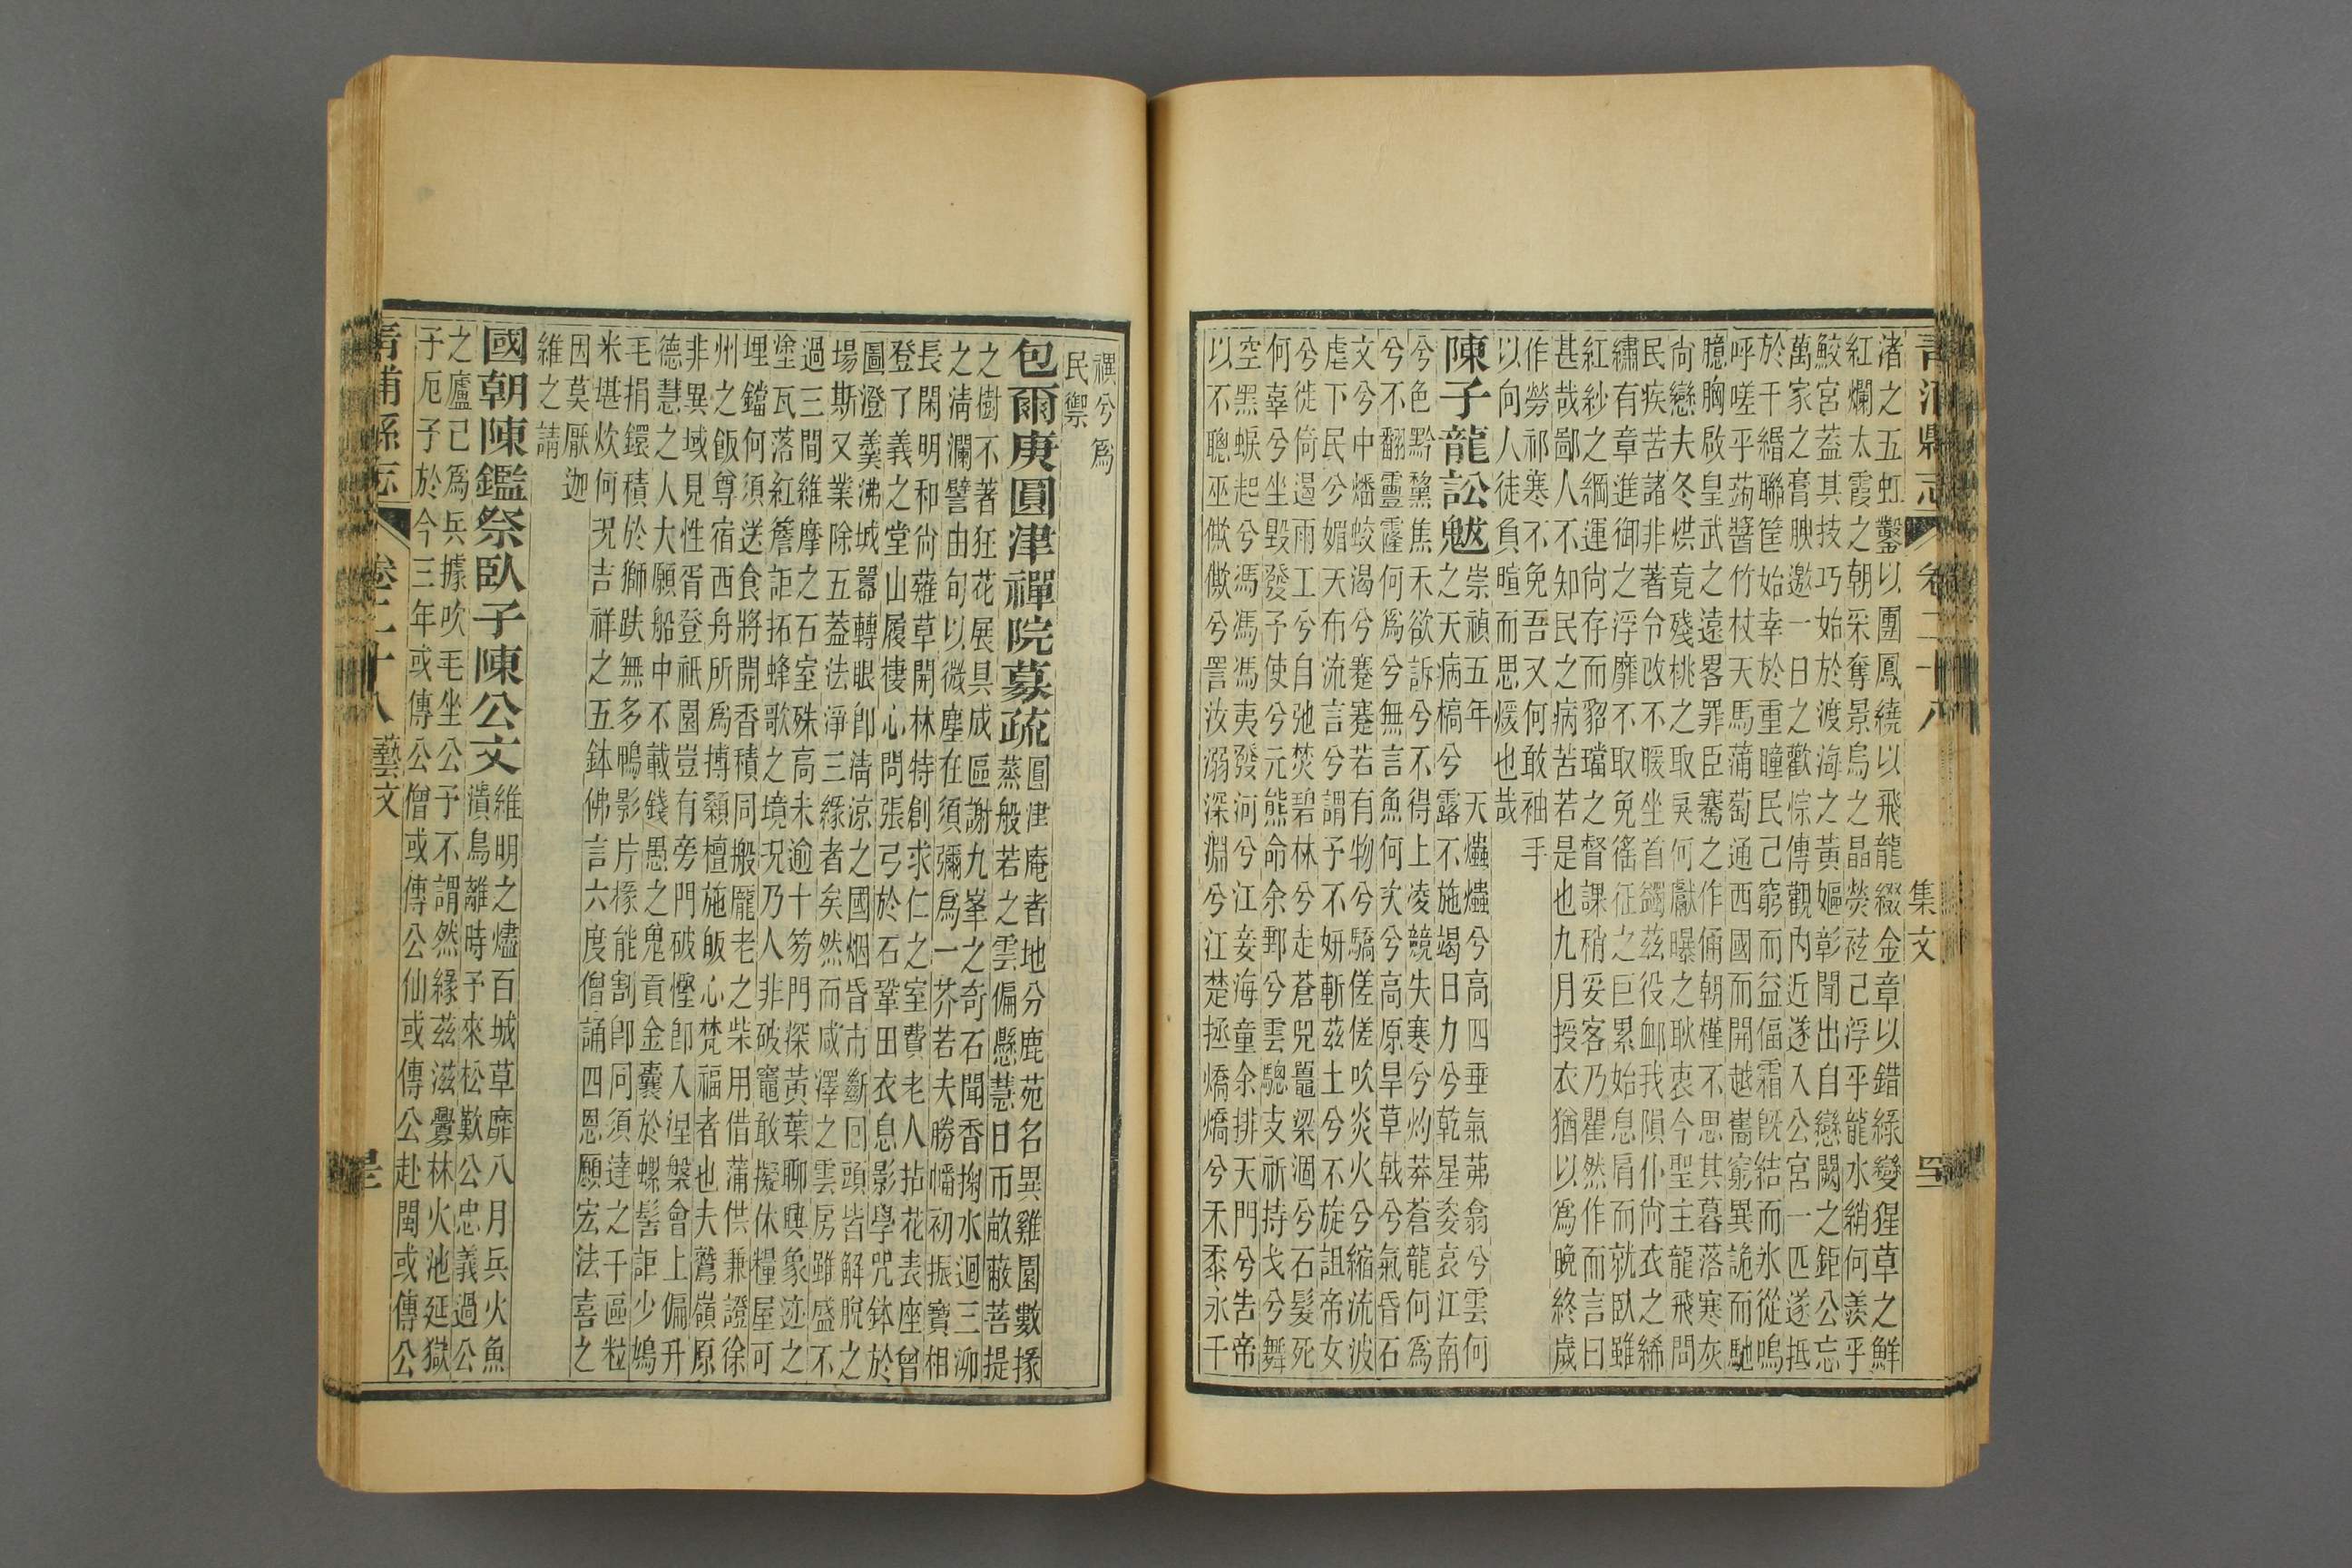 渚之五虹鑿以團鳳繞以飛龍綴金章以錯綠變猩草之鮮
紅爛太霞之朝采奪景烏之晶熒袨己浮乎龍水綃何羨乎
鮫宮蓋其技巧始於渡海之黃嫗彰聞出自戀闕之鉅公忘
萬家之膏腴邀一日之歡悰傳觀內近遂入公宮一匹遂抵
於千緡聯筐始幸於重瞳民己窮而益偪霜旣結而氷從鳴
呼嗟乎蒟醬竹杖天馬蒲萄通西國而開越巂窮異詭而馳
臆胸啟皇武之遠畧罪臣騫之作俑朝槿不思其暮落寒灰
尙戀夫冬烘竟殘桃之取戾何獻曝之耿衷今聖主龍飛問
民疾苦諸非著令改不暖坐首鐲茲役衂我隕仆尙衣之絺
繡有章進御之浮靡不取免徭征之巨累始息肩而就臥雖
紅紗之綱運尙存而貂璫之督課稍妥客乃瞿然作而言曰
甚哉鄙人不知民之病苦若是也九月授衣猶以爲晚終歲
作勞祁寒不免吾又何敢袖手
以向人徒負暄而思煖也哉
陳子龍訟魃
崇禎五年天爞爞兮高四垂氣茀翕兮雲何
之天病槁兮露不施竭日力兮乾星麥哀江南
兮色黔黧焦禾欲訴兮不得上凌競失寒兮灼莽蒼龍何爲
兮不翻靈霳何爲兮無言魚何㚐兮高原旱草戟兮氣昏石
文兮中燔蛟渴兮蹇蹇若有物兮驕傞傞吹炎火兮縮流波
虐下民兮媚天布流言兮謂予不妍斬茲土兮不旋詛帝女
兮徙倚遏雨工兮自弛焚碧林兮走蒼兕鼉梁涸兮石髮死
何辜兮坐毀發予使兮元熊命余鄄兮雲驄支祈持戈兮舞
空黑蜧起兮馮馮夷發河兮江妾海童余排天門兮吿帝
以不聰巫僛僛兮詈汝溺深淵兮江楚拯燆燆兮禾黍永千
禩兮爲
民禦
包爾庚圓津禪院募疏
圓津庵者地分鹿苑名異雞園數掾
蒸般若之雲偏懸慧日而畝蔽菩提
之樹不著狂花展具成區謝九峯之奇石聞香掬水迴三泖
之淸瀾譬由旬以微塵在須彌爲一芥若夫勝幡初振寶相
長閑明和尙薙草開林特創求仁之室費老人拈花表座曾
登了義之堂山履棲心問張弓於石鞏田衣息影學咒鉢於
圖澄羹沸城嚣轉眼卽淸涼之國烟昏市斷囘頭皆解脫之
場斯又業除五蓋法淨三緣者矣然而咸澤之雲房雖盛不
過三間維摩之石室殊高未逾十笏門深黃葉聊輿象迹之
塗瓦落紅簷詎拓蜂歌之境況乃人非破竈敢擬休糧屋可
埋鐺何須送食將開香積同搬龐老之柴用借蒲供兼證徐
州之飯尊宿西舟所爲搏顙檀施皈心梵福者也夫鷲嶺原
非異域見性胥登祇園豈有旁門破慳卽入涅槃會上偏升
德慧之人大願船中不載錢愚之鬼貢金囊於螺髻詎少鳩
毛捐鐶積於獅趺無多鴨影片椽能割卽同須達之千區粒
米堪炊何況吉祥之五鉢佛言六度僧誦四恩願宏法喜之
因莫厭迦
維之請
國朝陳鑑祭臥子陳公文
維明之燼百城草靡八月兵火魚
潰鳥離時予來松歎公忠義過公
之廬己爲兵據吹毛坐公予不謂然緣茲滋釁林火池延獄
子厄子於今三年或傳公僧或傳公仙或傳公赴閩或傳公